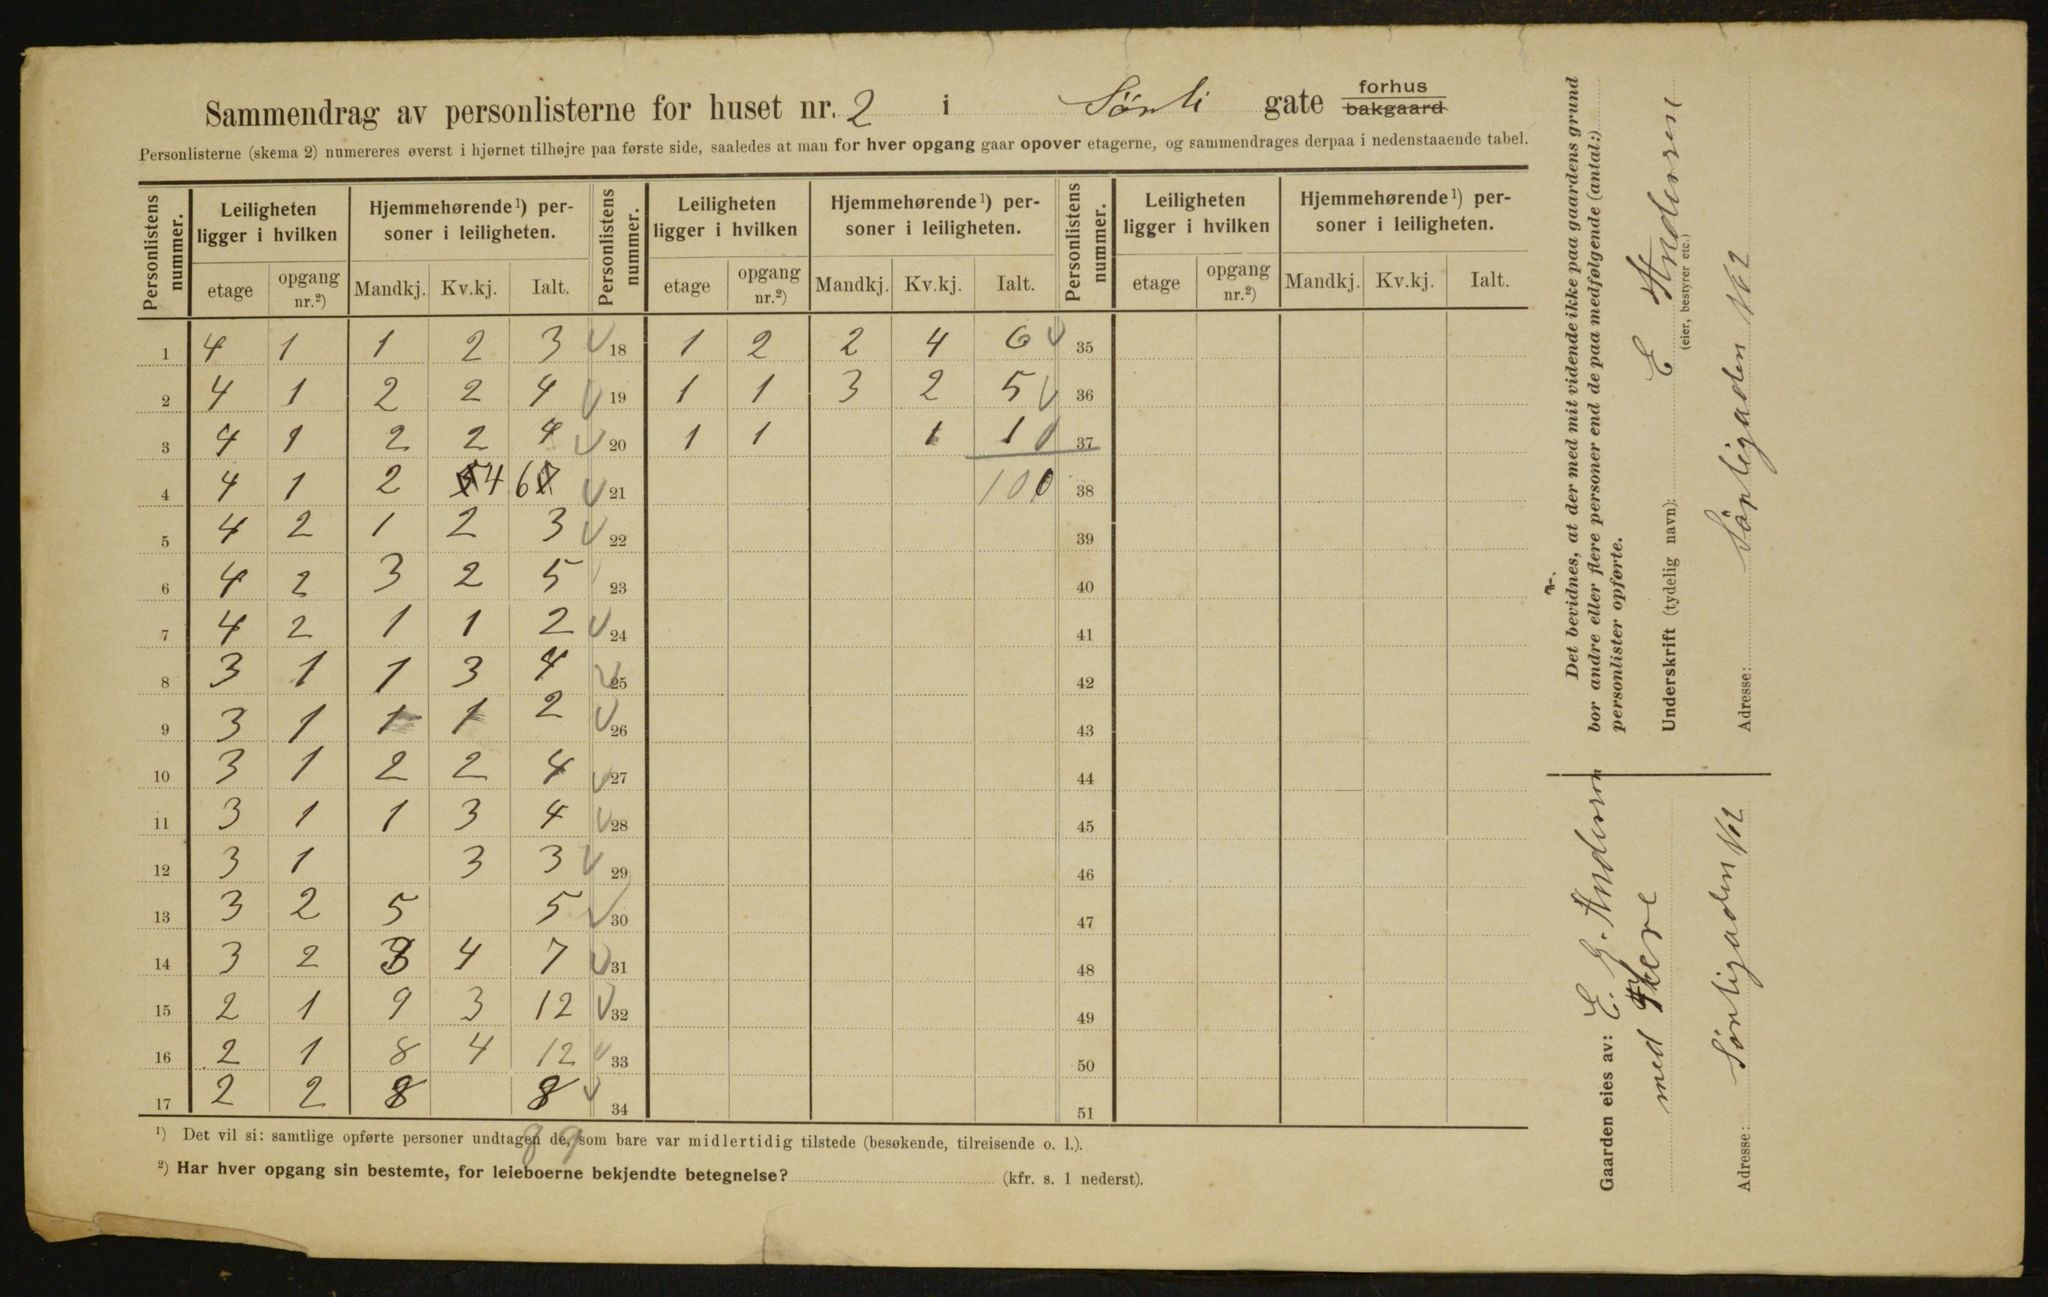 Sammendrag av personlisterne for huset nr. 2 i Sörli gate forhus bakgaard
Personlisterne (skema 2) numereres øverst i hjørnet tilhøjre paa første side, saaledes at man for hver opgang gaar opover etagerne, og sammendrages derpaa i nedenstaaende tabel.
Personlistens nummer. Leiligheten ligger i hvilken Hjemmehørende¹) personer i leiligheten. Personlistens nummer. Leiligheten ligger i hvilken Hjemmehørende¹) personer i leiligheten. Personlistens nummer. Leiligheten ligger i hvilken Hjemmehørende¹) personer i leiligheten.
etage opgang nr.²) Mandkj. Kv.kj. Ialt. etage opgang nr.²) Mandkj. Kv.kj. Ialt. etage opgang nr.²) Mandkj. Kv.kj. Ialt.
1 4 1 1 2 3 18 1 2 2 4 6 35
2 4 1 2 2 4 19 1 1 3 2 5 36
3 4 1 2 2 4 20 1 1 1 1 37
4 4 1 2 4 6 21 100 38
5 4 2 1 2 3 22 39
6 4 2 3 2 5 23 40
7 4 2 1 1 2 24 41
8 3 1 1 3 4 25 42
9 3 1 1 1 2 26 43
10 3 1 2 2 4 27 44
11 3 1 1 3 4 28 45
12 3 1 3 3 29 46
13 3 2 5 5 30 47
14 3 2 3 4 7 31 48
15 2 1 9 3 12 32 49
16 2 1 8 4 12 33 50
17 2 2 8 8 34 51
¹) Det vil si: samtlige opførte personer undtagen de, som bare var midlertidig tilstede (besøkende, tilreisende o. l.).
²) Har hver opgang sin bestemte, for leieboerne bekjendte betegnelse? (kfr. s. 1 nederst).
Det bevidnes, at der med mit vidende ikke paa gaardens grund
bor andre eller flere personer end de paa medfølgende (antal:)
personlister opførte.
Underskrift (tydelig navn): E Andersen
(eier, bestyrer etc.)
Adresse: Sörligaden No 2
Gaarden eies av: E. G. Andersen
med Flere
Adresse: Sörligaden No 2